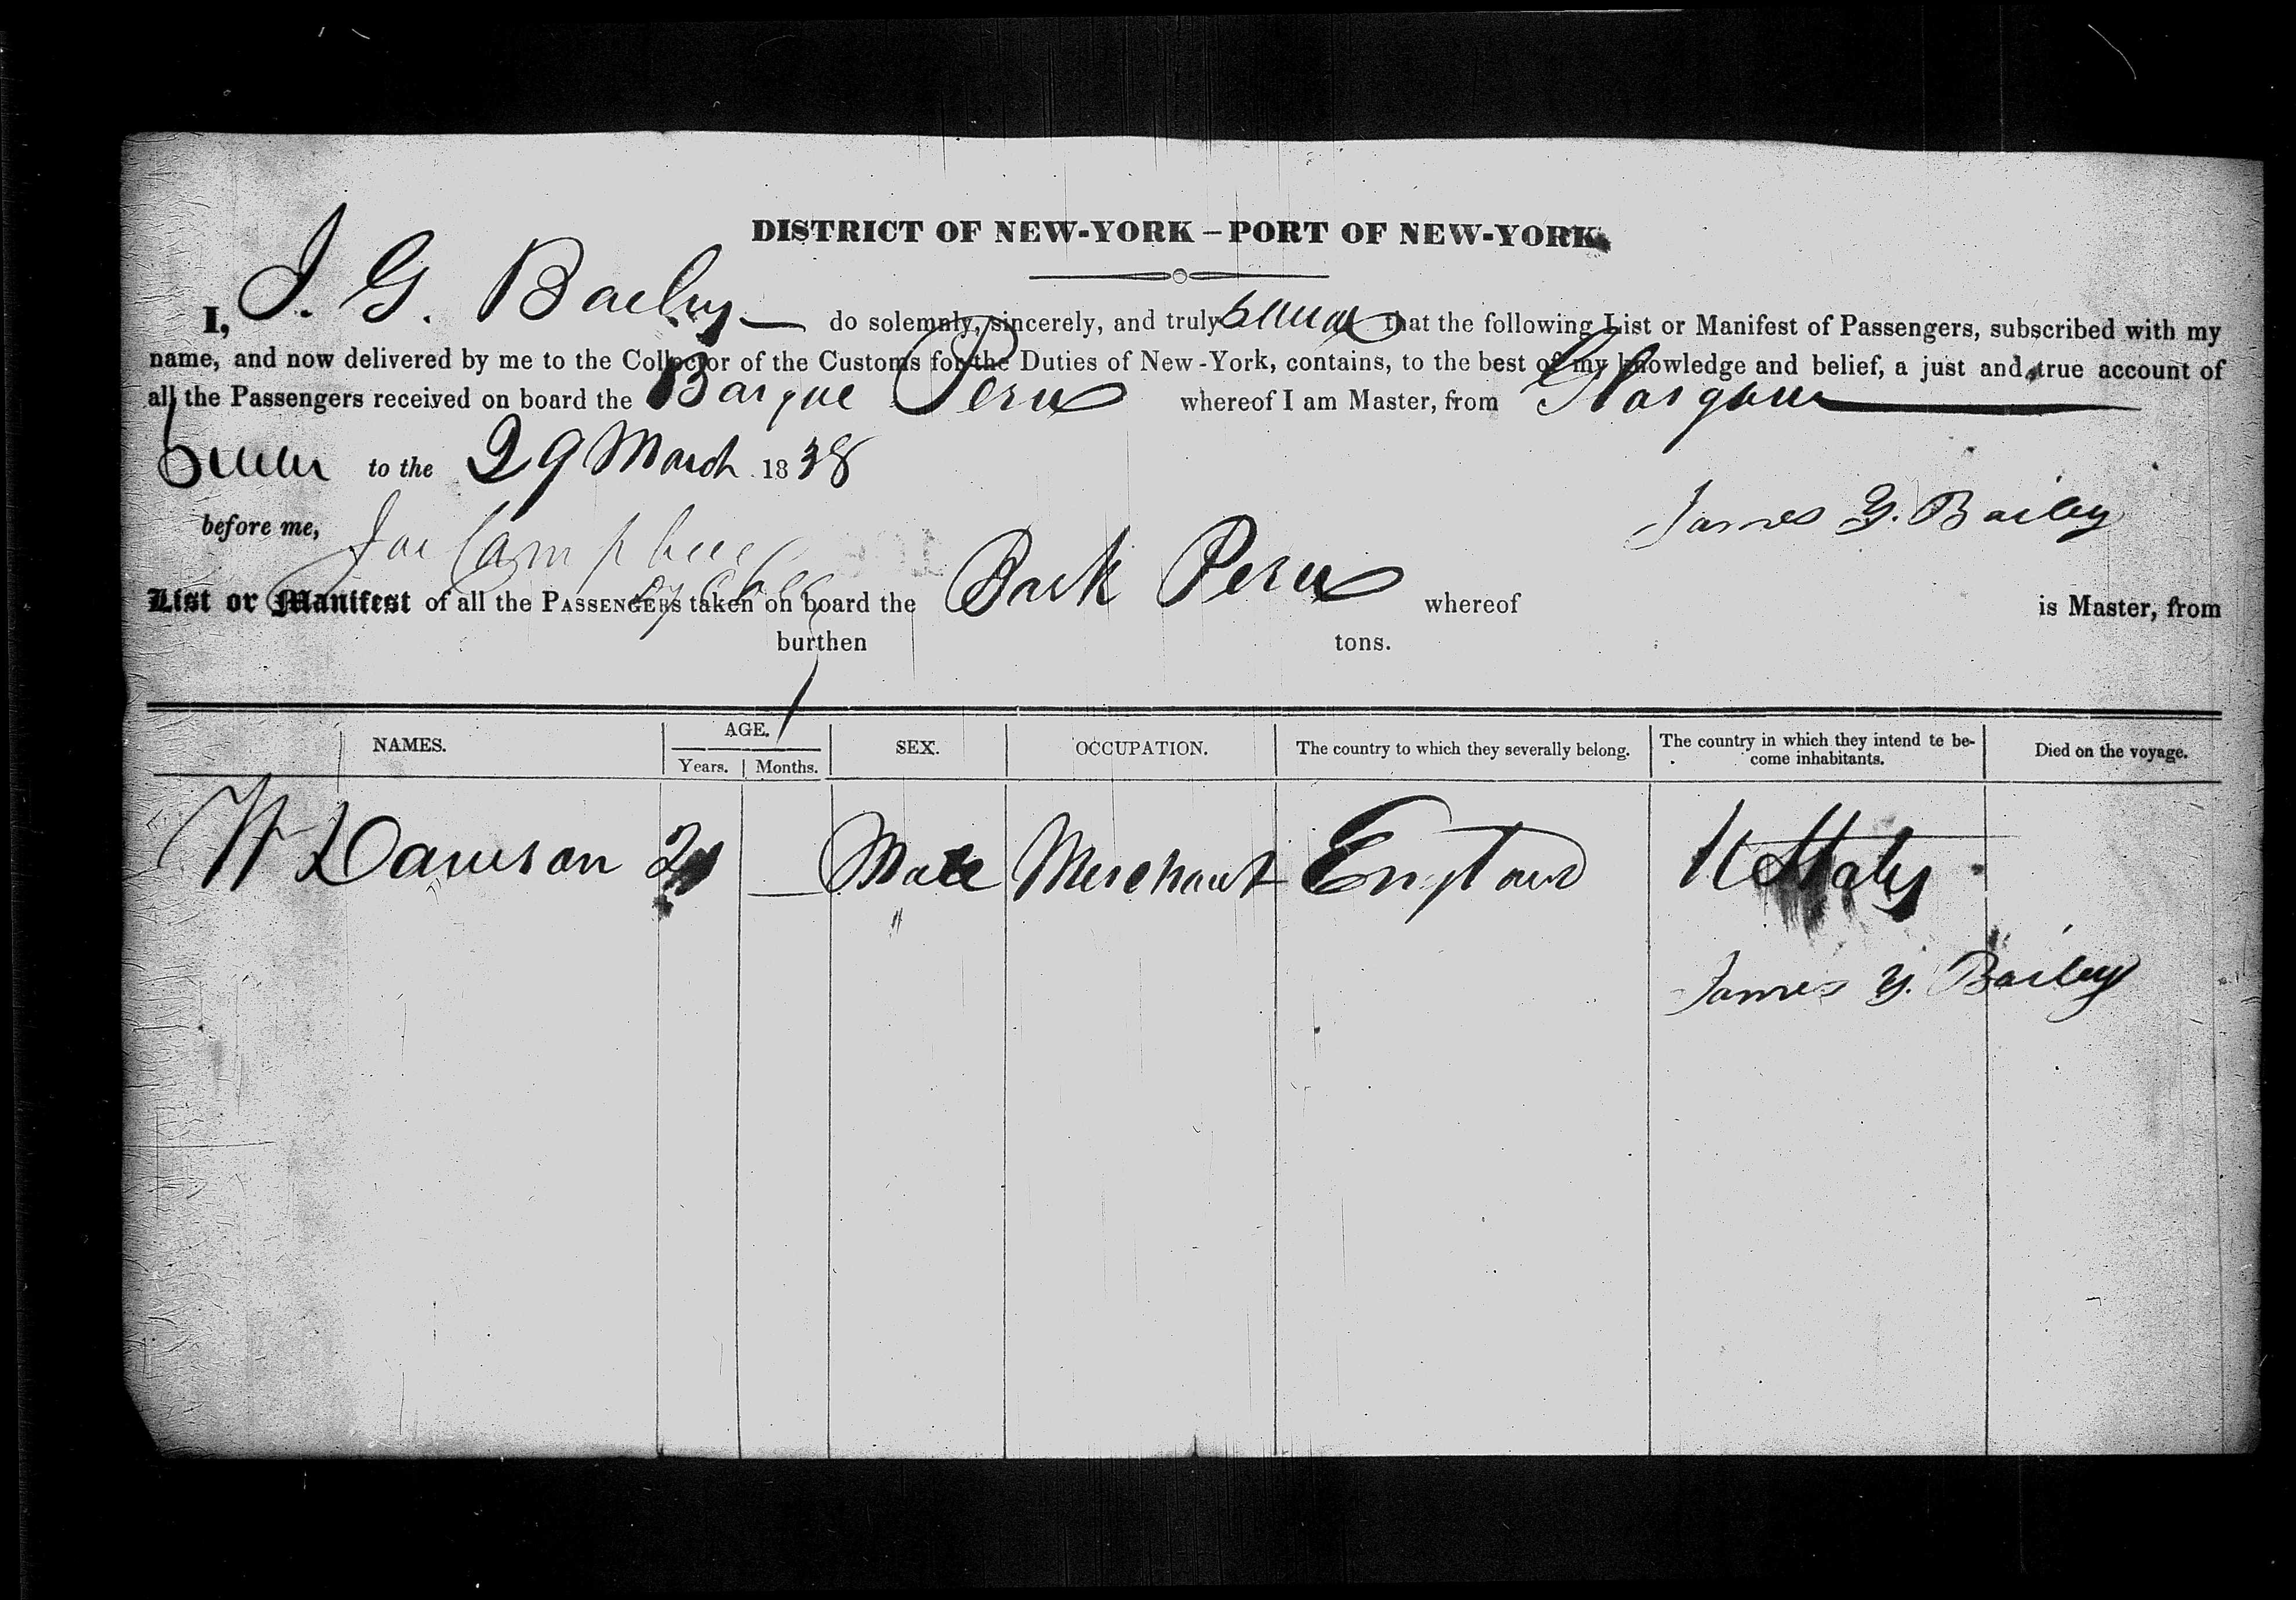 DISTRICT OF NEW-YORK – PORT OF NEW-YORK.
I, J. G. Bailey do solemnly, sincerely, and truly swear that the following List or Manifest of Passengers, subscribed with my
name, and now delivered by me to the Collector of the Customs for the Duties of New-York, contains, to the best of my knowledge and belief, a just and true account of
all the Passengers received on board the Barque Peru whereof I am Master, from Glasgow
Sworn to the 29 March 1838
James G. Bailey
before me, Campbell
List or Manifest of all the PASSENGERS taken on board the Bark Peru whereof is Master, from
burthen tons.
NAMES. AGE. Years. Months. SEX. OCCUPATION. The country to which they severally belong. The country in which they intend te become inhabitants. Died on the voyage.
W Dawson Male Merchant England U States
James G. Bailey